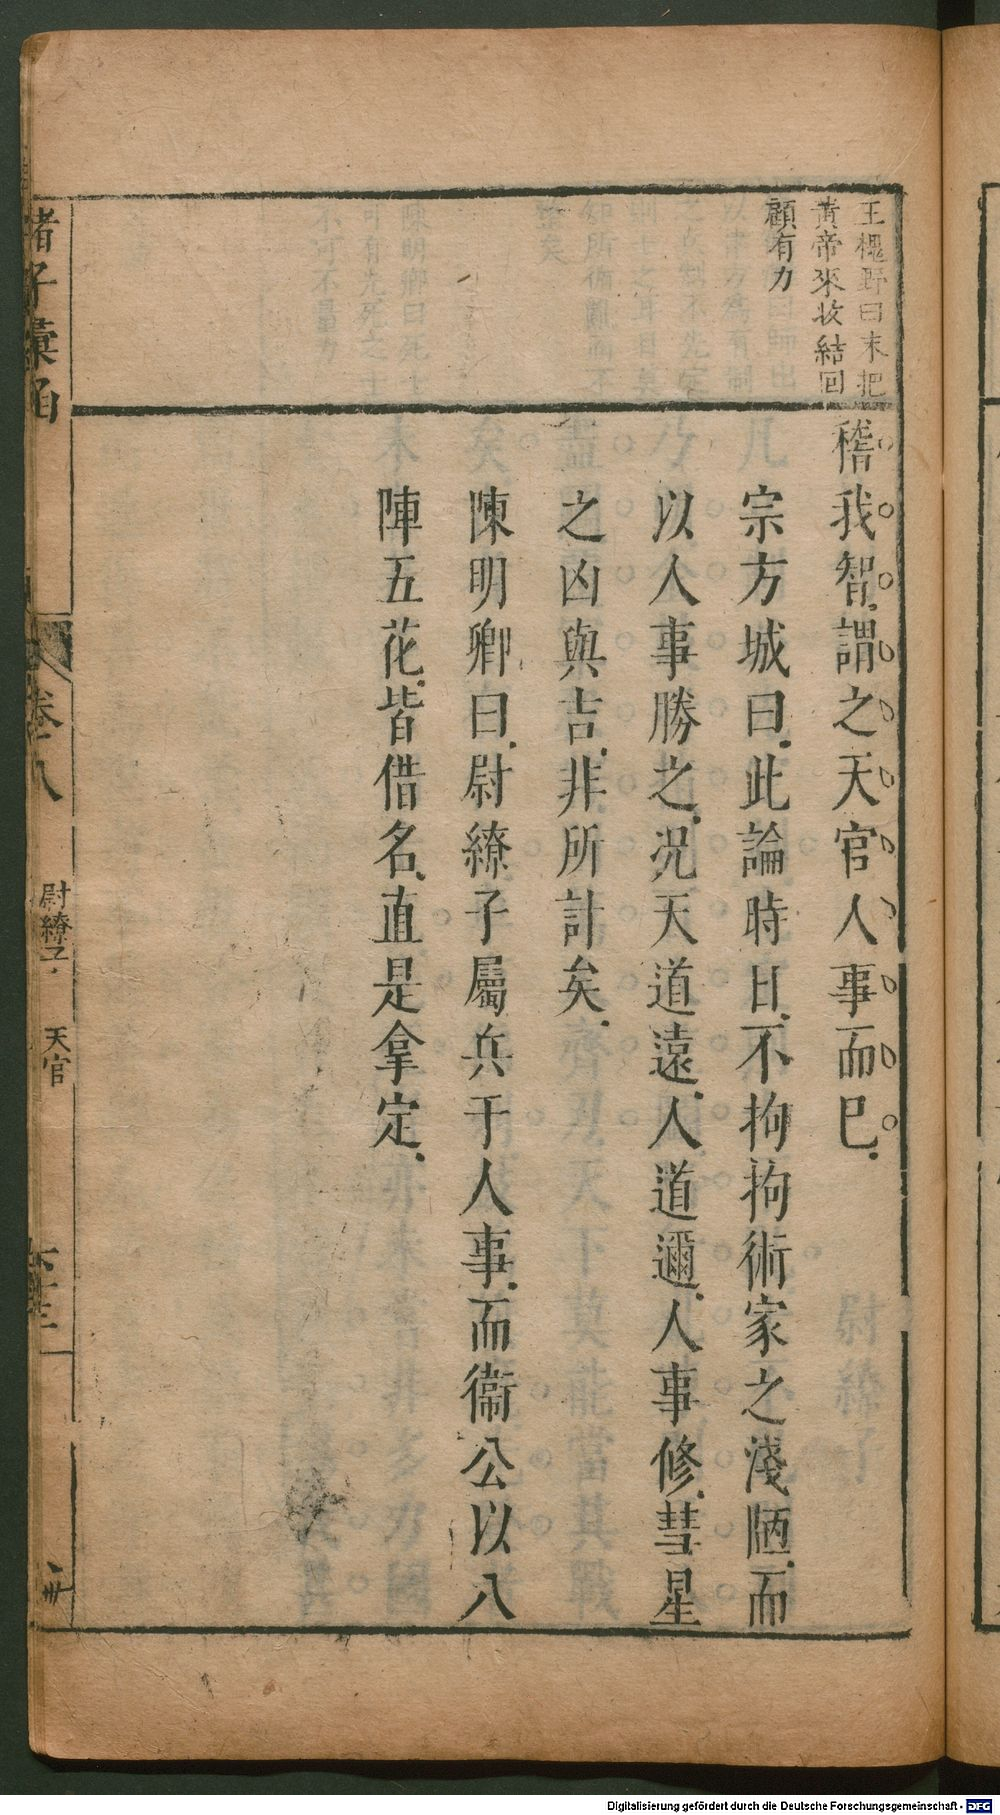 王槐野曰末把
黃帝來收結回
顧有力
稽我智謂之天官人事而已
宗方城曰此論時日不拘拘術家之淺陋而
以人事勝之况天道遠人道邇人事修彗星
之凶與吉非所計矣
陳明卿曰尉繚子屬兵于人事而衞公以八
陣五花皆借名直是拿定
諸子彙函
卷八
尉繚子
天官
Digitalisierung gefördert durch die Deutsche Forschungsgemeinschaft - DFG